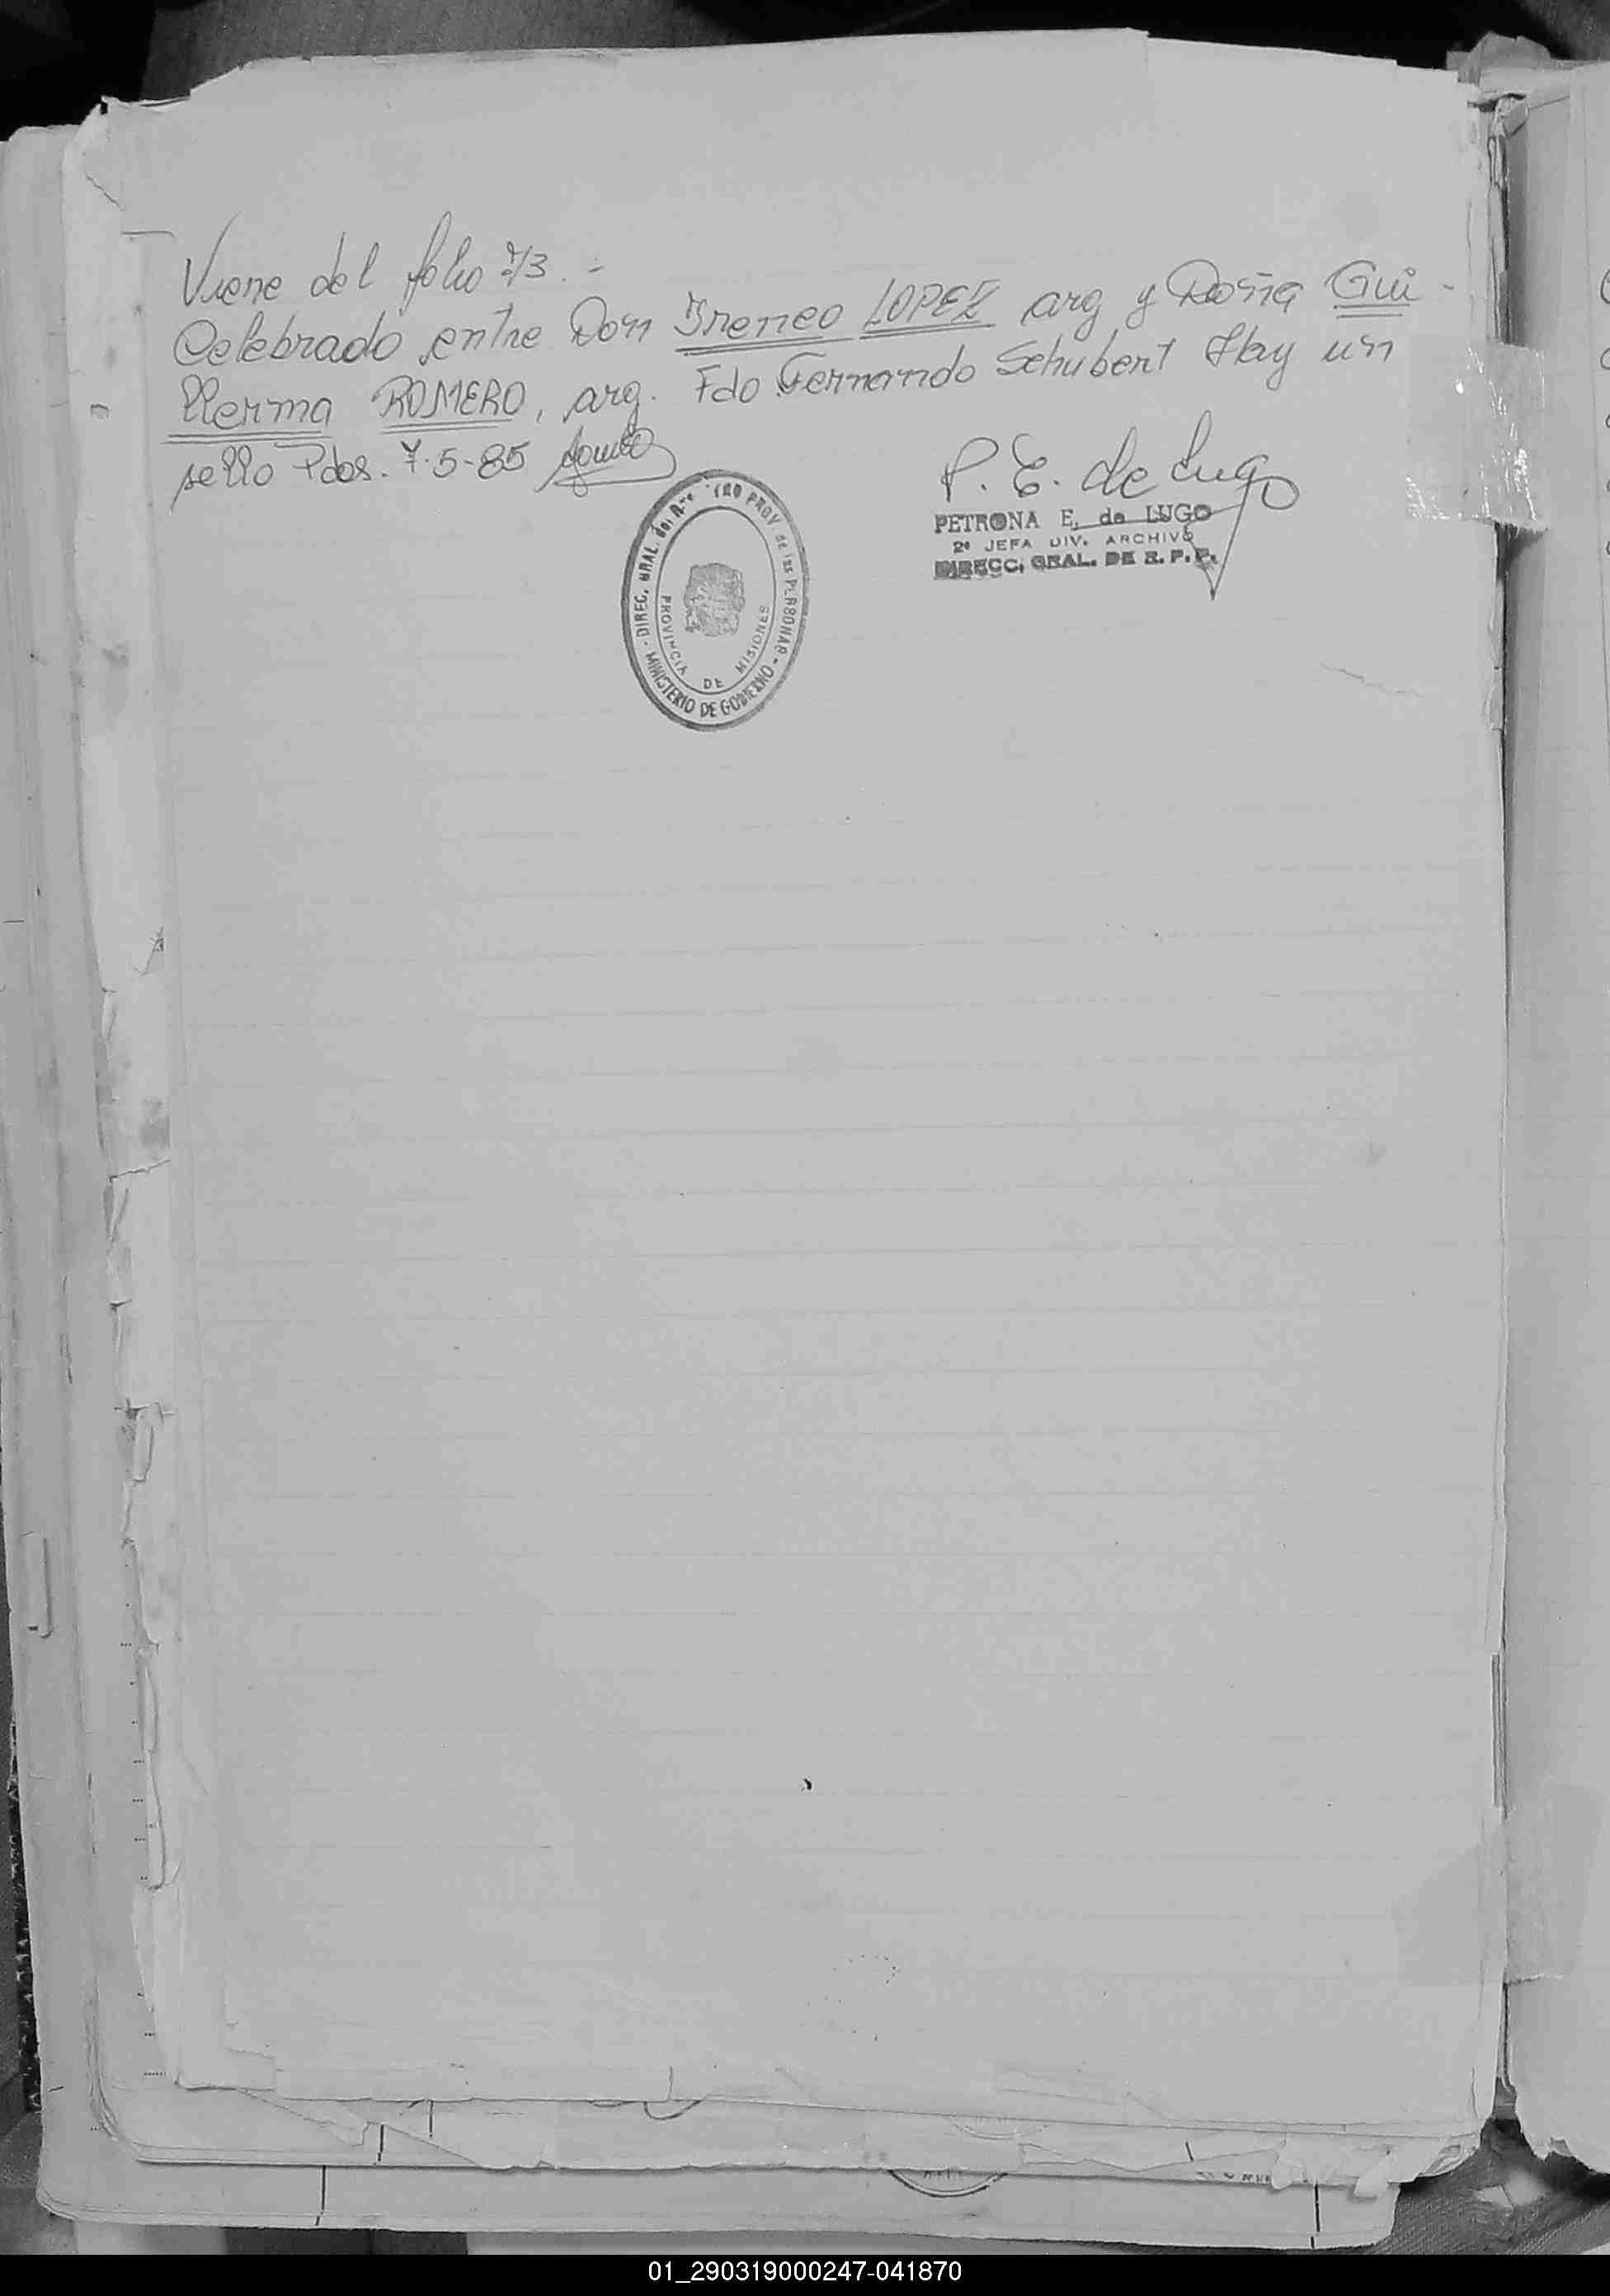 Viene del folio 73.-
Celebrado entre Don Ireneo LOPEZ arg y Doña Gui-
llerma ROMERO, arg. Fdo Fernando Schubert Hay un
sello Pdas. 7-5-85
P. E. de Lugo
PETRONA E. de LUGO
2ª JEFA DIV. ARCHIVO
DIRECC. GRAL. DE R. P. P.
DIREC. GRAL. del PROV de las PERSONAS
MINISTERIO DE GOBIERNO
PROVINCIA DE MISIONES
01_290319000247-041870